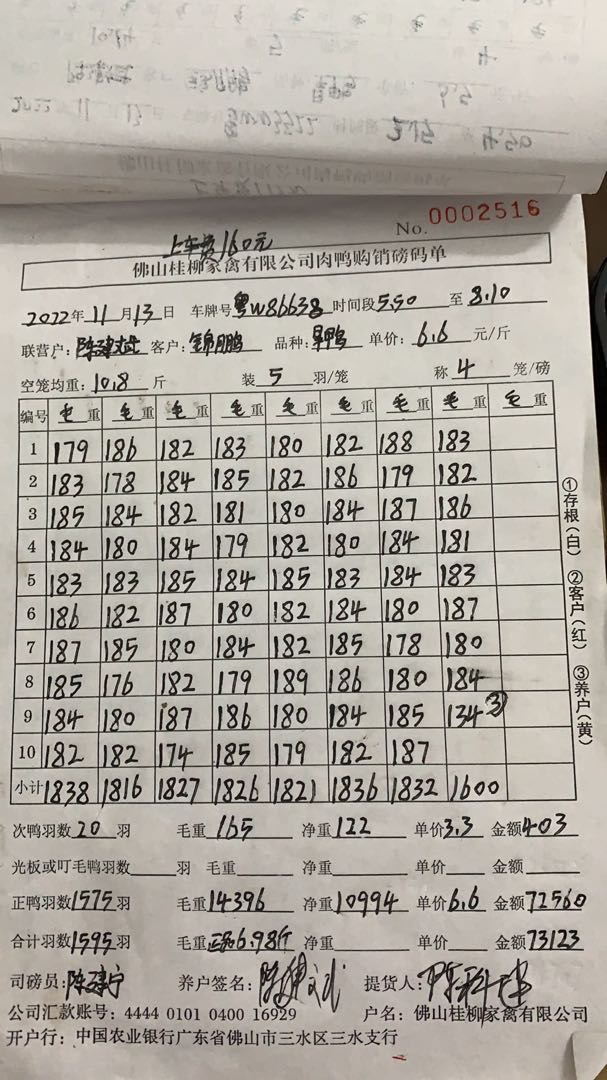 No. 0002516
上车费160元
佛山桂柳家禽有限公司肉鸭购销磅码单
2022年11月13日 车牌号粤W86638 时间段5.50至8.10
联营户: 客户:锦鹏 品种: 单价:6.6元/斤
空笼均重:10.8斤 装5羽/笼 称4笼/磅
编号 毛重 毛重 毛重 毛重 毛重 毛重 毛重 毛重 毛重
1 179 186 182 183 180 182 188 183
2 183 178 184 185 182 186 179 182
3 185 184 182 181 180 184 187 186
4 184 180 184 179 182 180 184 181
5 183 183 185 184 185 183 184 183
6 186 182 187 180 182 184 180 187
7 187 185 180 184 182 185 178 180
8 185 176 182 179 189 186 180 184
9 184 180 187 186 180 184 185 134③
10 182 182 174 185 179 182 187
小计 1838 1816 1827 1826 1821 1836 1832 1600
①存根(白) ②客户(红) ③养户(黄)
次鸭羽数20羽 毛重165 净重122 单价3.3 金额403
光板或叮毛鸭羽数 羽 毛重 净重 单价 金额
正鸭羽数1575羽 毛重14396 净重10994 单价6.6 金额72560
合计羽数1595羽 毛重 6.98斤 净重 单价 金额73123
司磅员: 养户签名: 提货人:
公司汇款账号:4444 0101 0400 16929 户名:佛山桂柳家禽有限公司
开户行:中国农业银行广东省佛山市三水区三水支行